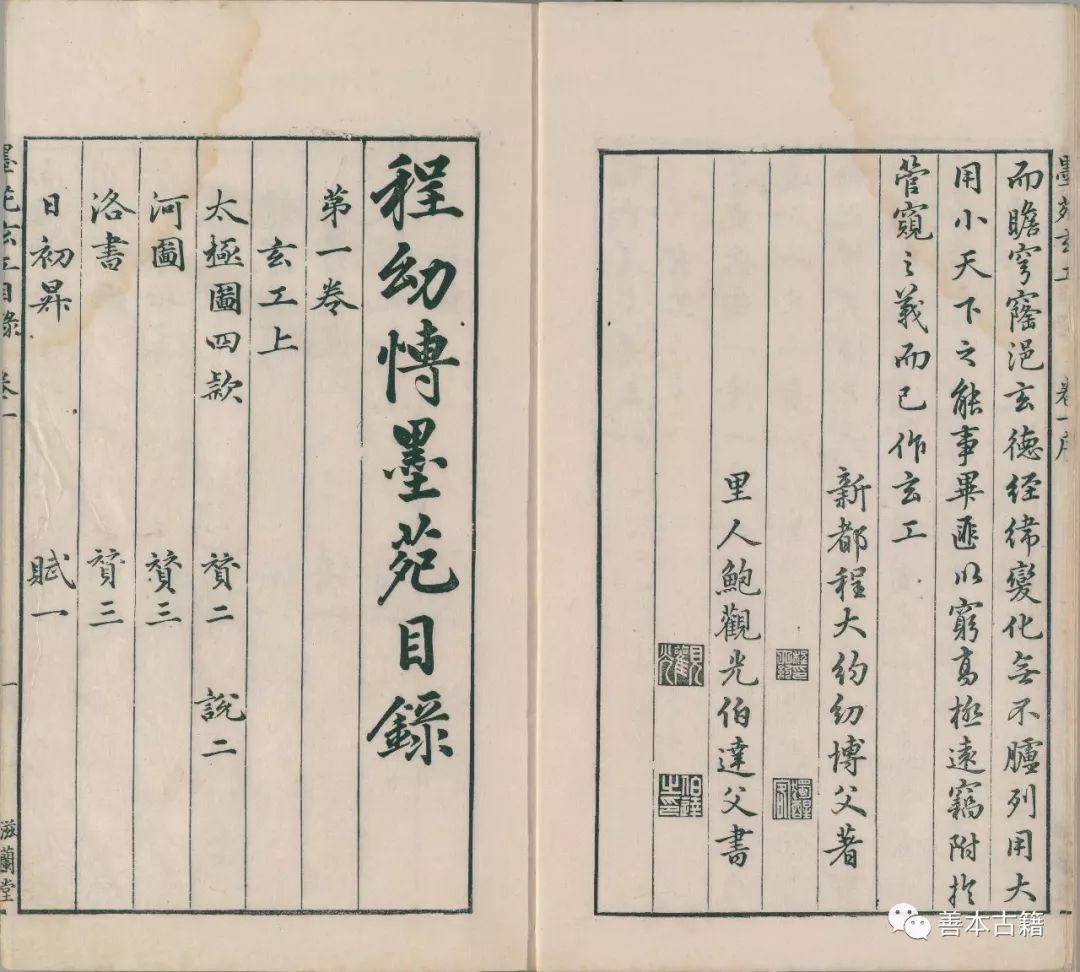 墨苑玄工 卷一序
而瞻穹窿浥玄德經緯變化無不臚列用大
用小天下之能事畢匪以窮高極遠竊附於
管窺之義而已作玄工
新都程大約幼博父著
里人鮑觀光伯達父書
觀光
伯達之印
程幼博墨苑目錄
第一卷
玄工上
太極圖四款 贊二 說二
河圖 贊三
洛書 贊三
日初昇 賦一
墨苑玄工目錄 卷一 一 滋蘭堂
善本古籍